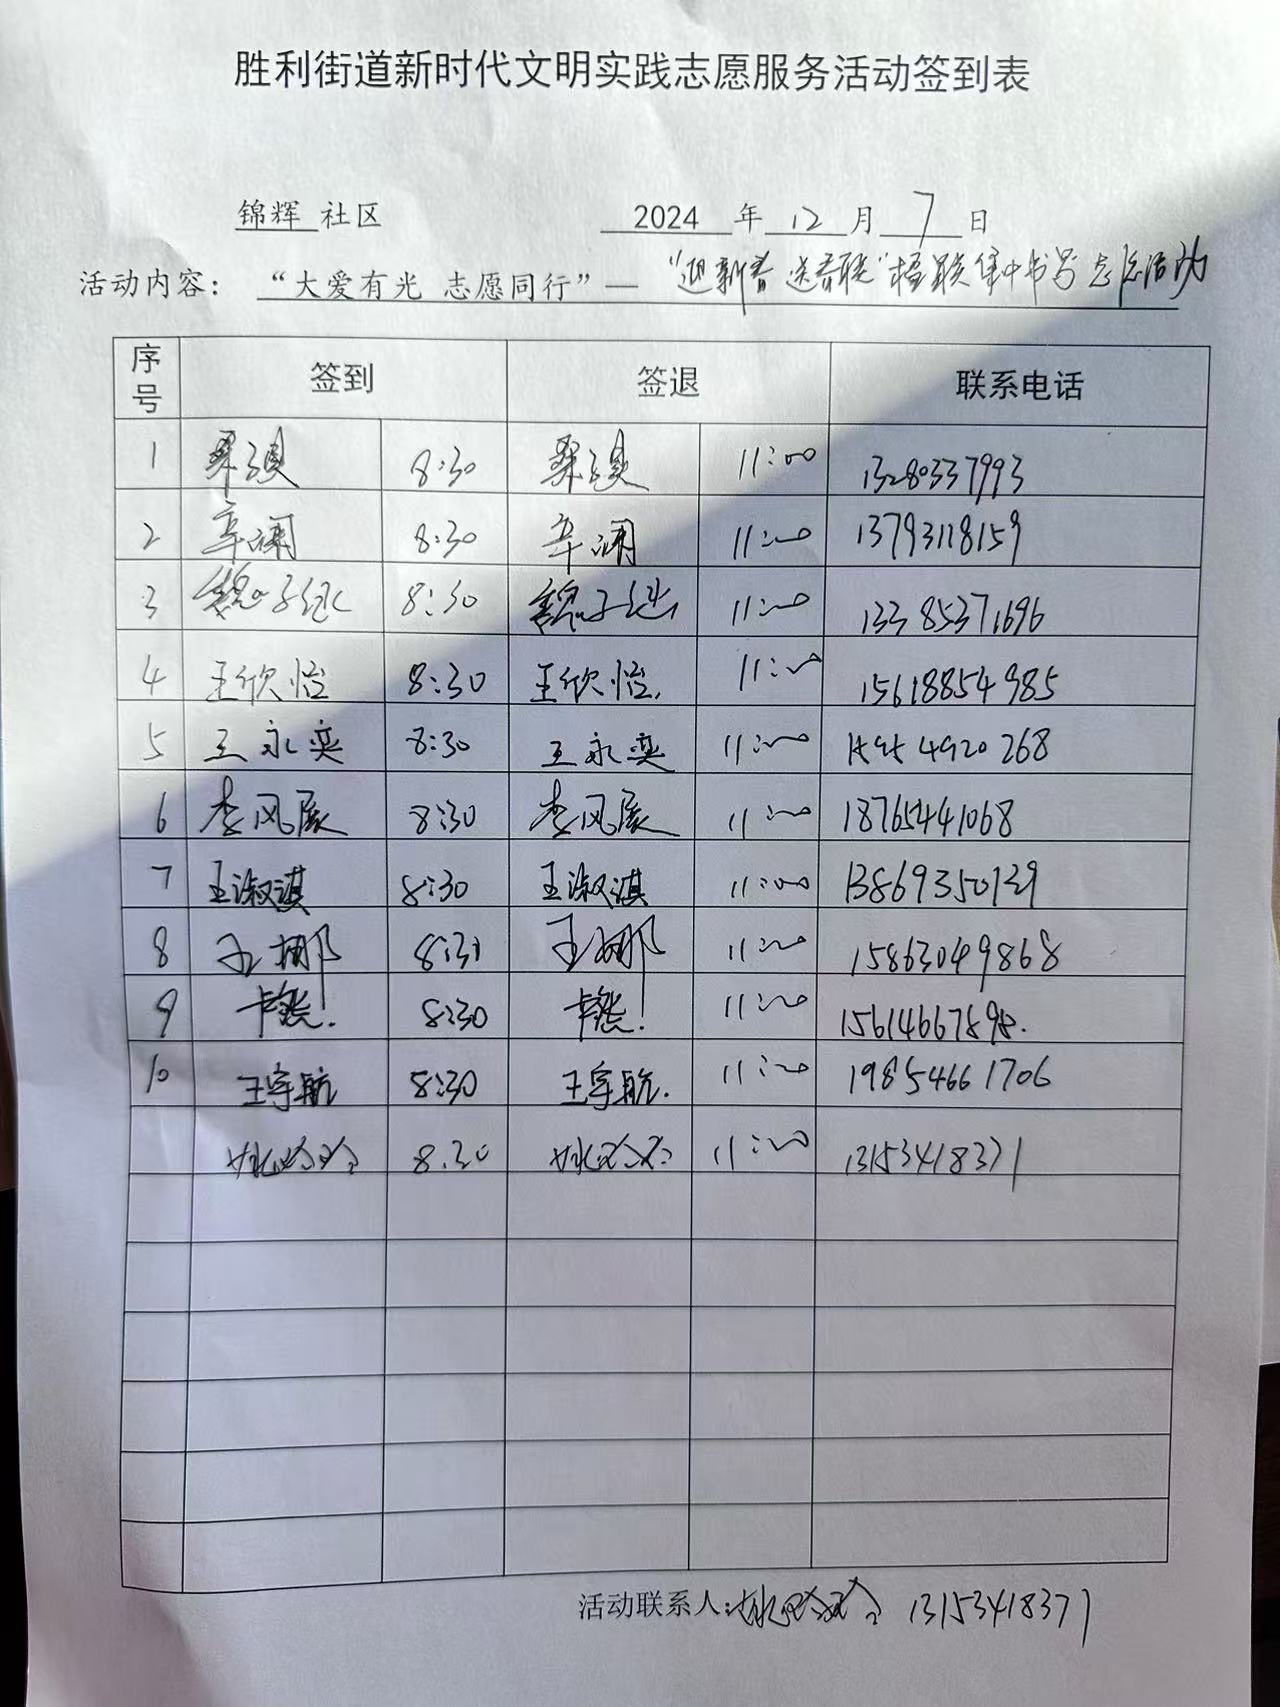 胜利街道新时代文明实践志愿服务活动签到表
锦辉 社区 2024 年 12 月 7 日
活动内容： “大爱有光 志愿同行”— “迎新春 送春联”楹联集中书写志愿活动
序号 签到 签退 联系电话
1 8:30 11:00 13280337993
2 辛澜 8:30 辛澜 11:00 13793118159
3 魏子 8:30 魏子 11:00 13385371696
4 王欣怡 8:30 王欣怡. 11:00 15618854985
5 王永奕 8:30 王永奕 11:00 4920268
6 李风展 8:30 李风展 11:00 18765441068
7 王淑淇 8:30 王淑淇 11:00 13869350139
8 王娜 8:30 王娜 11:00 15863049868
9 8:30 11:00
10 王宇航 8:30 王宇航. 11:00 19854661706
姚 8:30 姚 11:00 13153418371
活动联系人：姚 13153418371